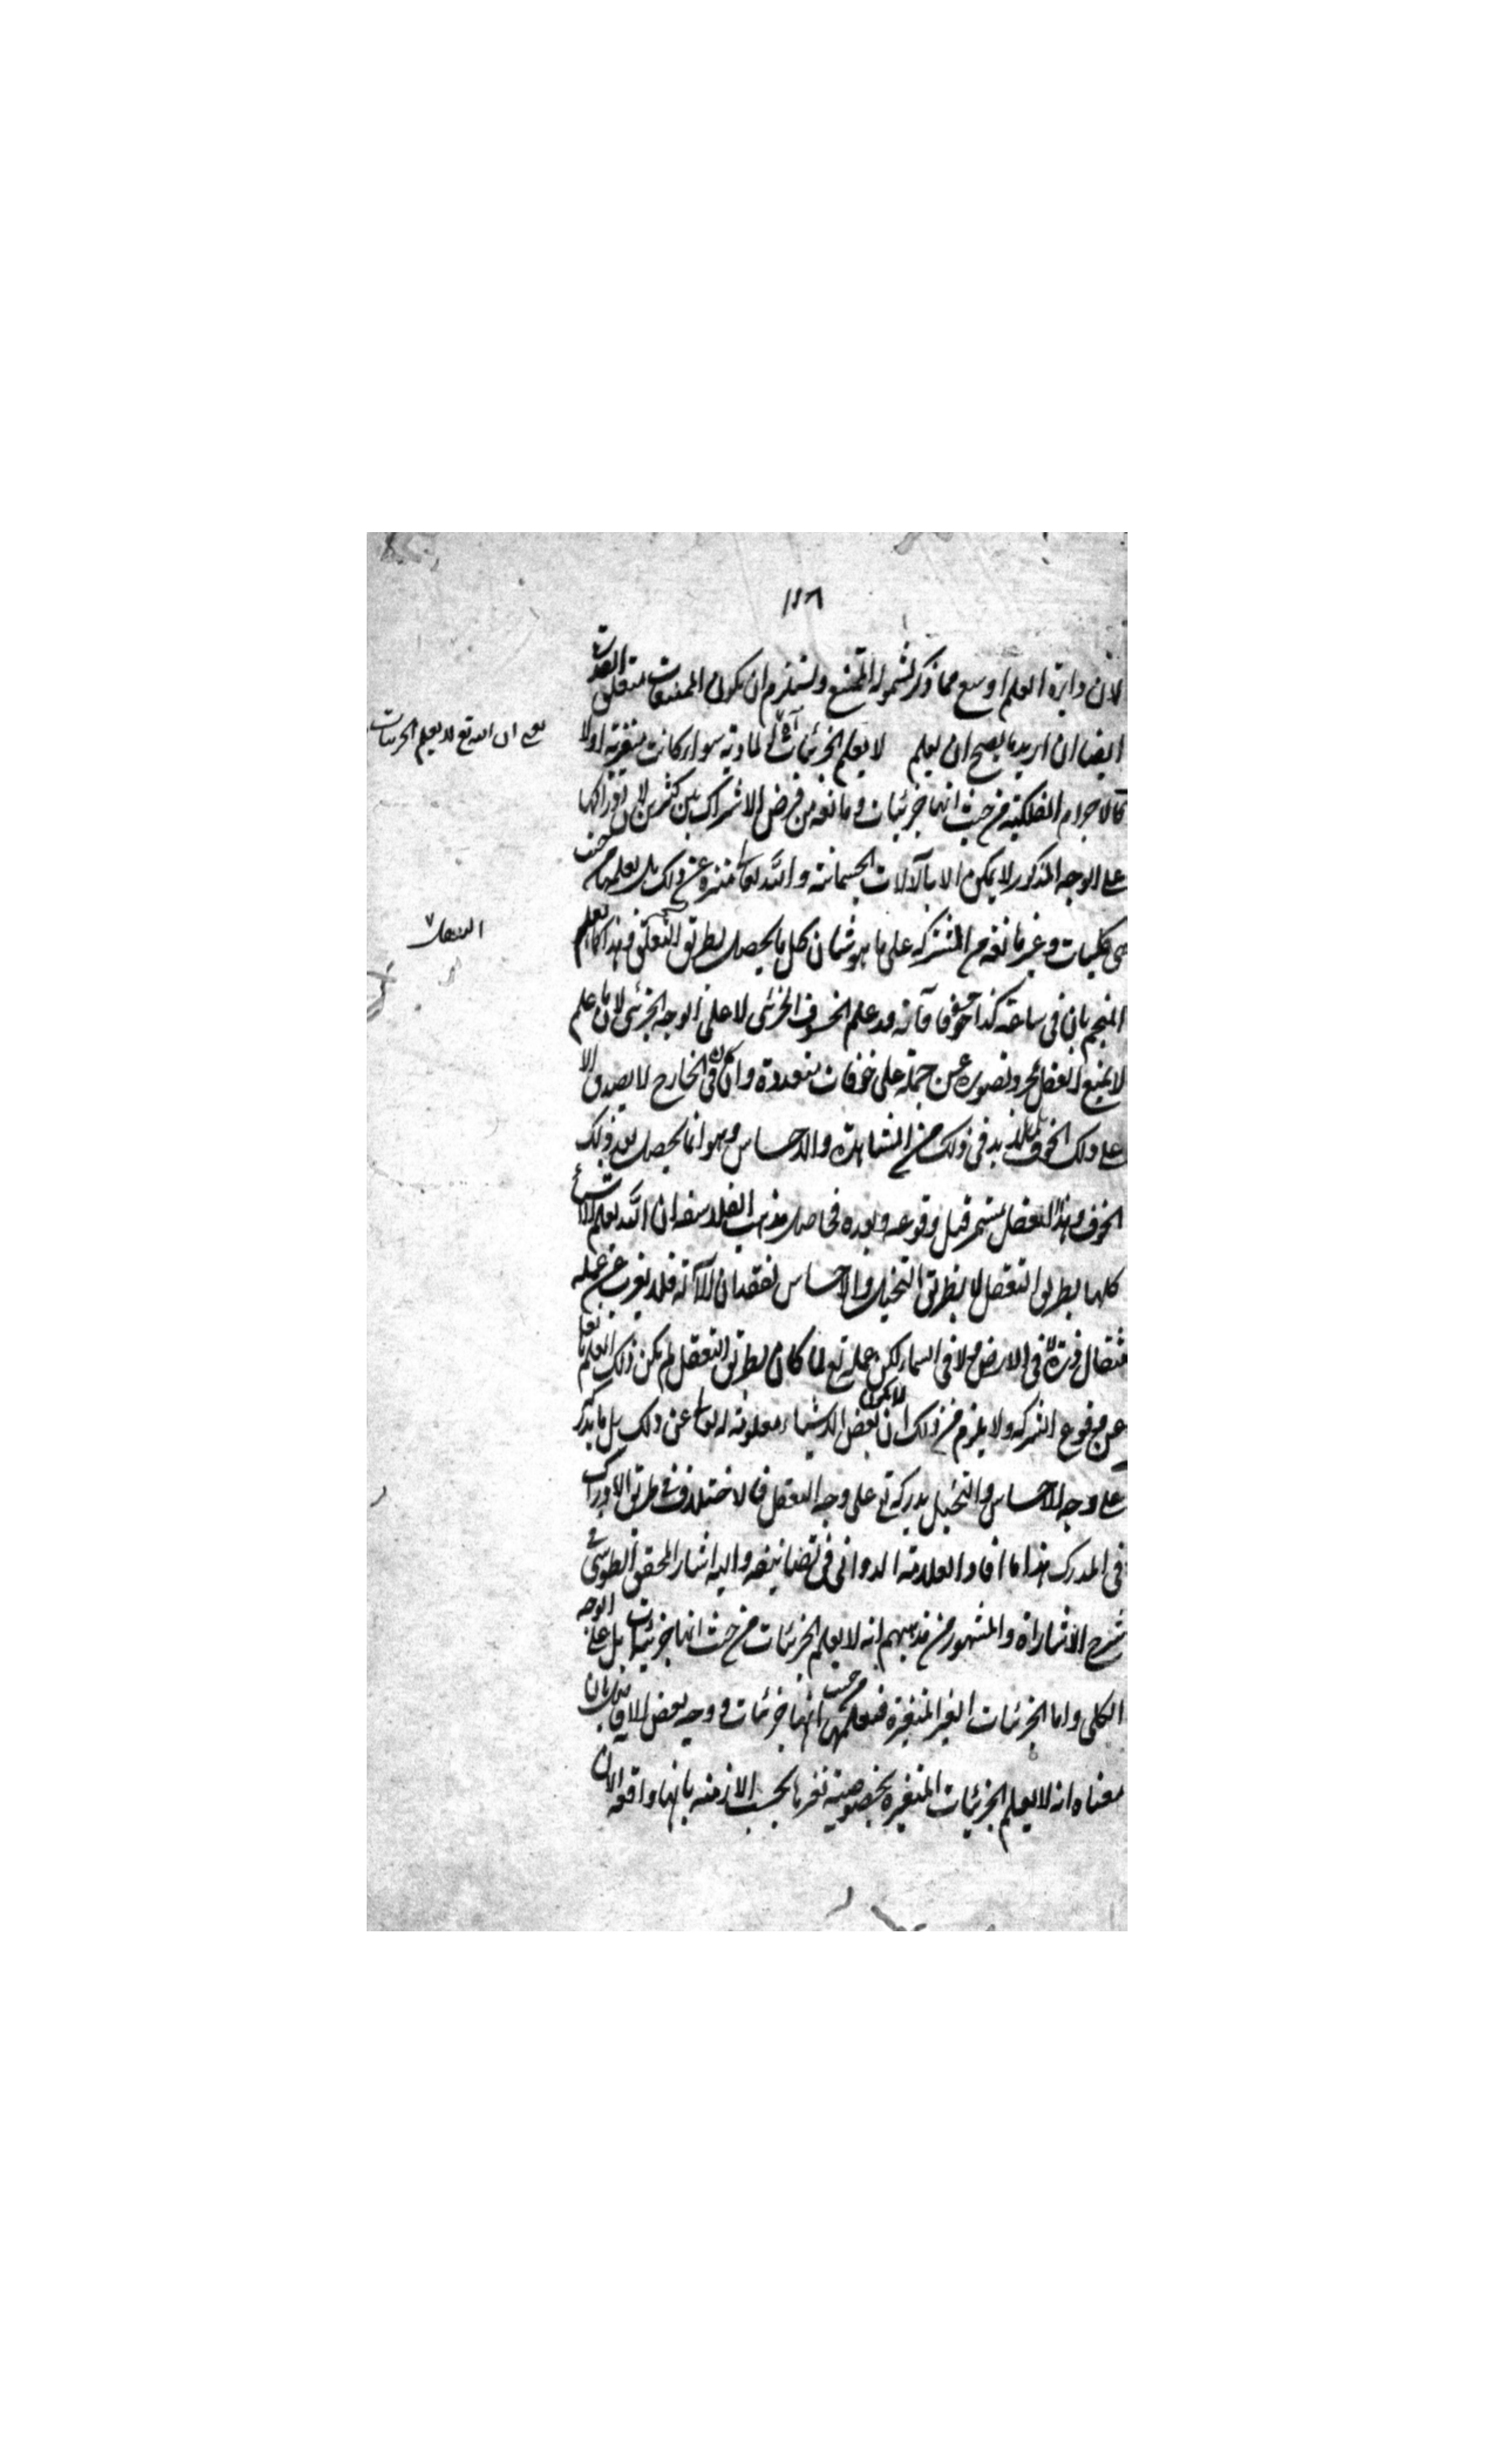 ١١٨
لان دايرة العلم اوسع مما ذكر لشموله الممتنع ولستلزم ان يكون الممتنعات متعلق القدرت
ايضا ان اريد ما يصح ان يعلم لا يعلم الجزئيات المادية سواء كانت متغيرة اولا
كالاجرام الفلكية من حيث انها جزئيات ومانعة من فرض الاشتراك بين كثيرين لان ادراكها
على الوجه المذكور لا يمكن الا بالآلات الجسمانية والله تعالى منزه عن ذلك بل يعلمها من حيث
هي كليات وغير مانعة من الشركة على ما هو شان كل ما يحصل بطريق التعقل وهذا كما يعلم
المنجم بان في ساعة كذا خسوفا فانه قد علم الخسوف الجزئي لا على الوجه الجزئي لان ما علم
لا يمنع العقل بمجرد تصوره عن حمله على خسوفات متعددة وان كان في الخارج لا يصدق الا
على ذلك الخسوف بل لابد في ذلك من المشاهدة والاحساس وهو انما يحصل بعد ذلك
الخسوف وهذا التعقل مستمر قبل وقوعه وبعده فحاصل مذهب الفلاسفة ان الله يعلم الاشياء
كلها بطريق التعقل لا بطريق التخيل والاحساس لفقدان الآلة فلا يعزب عن علمه
مثقال ذرة في الارض ولا في السماء لكن علمه تع لما كان بطريق التعقل لم يكن ذلك العلم مانعا
عن وقوع الشركة ولا يلزم من ذلك ان لا يكون بعض الاشياء معلومة له تعالى عن ذلك بل ما يدركه
على وجه الاحساس والتخيل يدركه تع على وجه التعقل فالاختلاف في طريق الادراك
في المدرك هذا ما افاد العلامة الدواني في تصانيفه واليه اشار المحقق الطوسي في
شرح الاشارات والمشهور من مذهبهم انه لا يعلم الجزئيات من حيث انها جزئيات بل على الوجه
الكلي واما الجزئيات الغير المتغيرة فيعلمها من حيث انها جزئيات ووجه بعض الافاضل بان
معناه انه لا يعلم الجزئيات المتغيرة بخصوصية تغيرها بحسب الازمنه بانها واقعة الان
ان الله تع لا يعلم الجزئيات